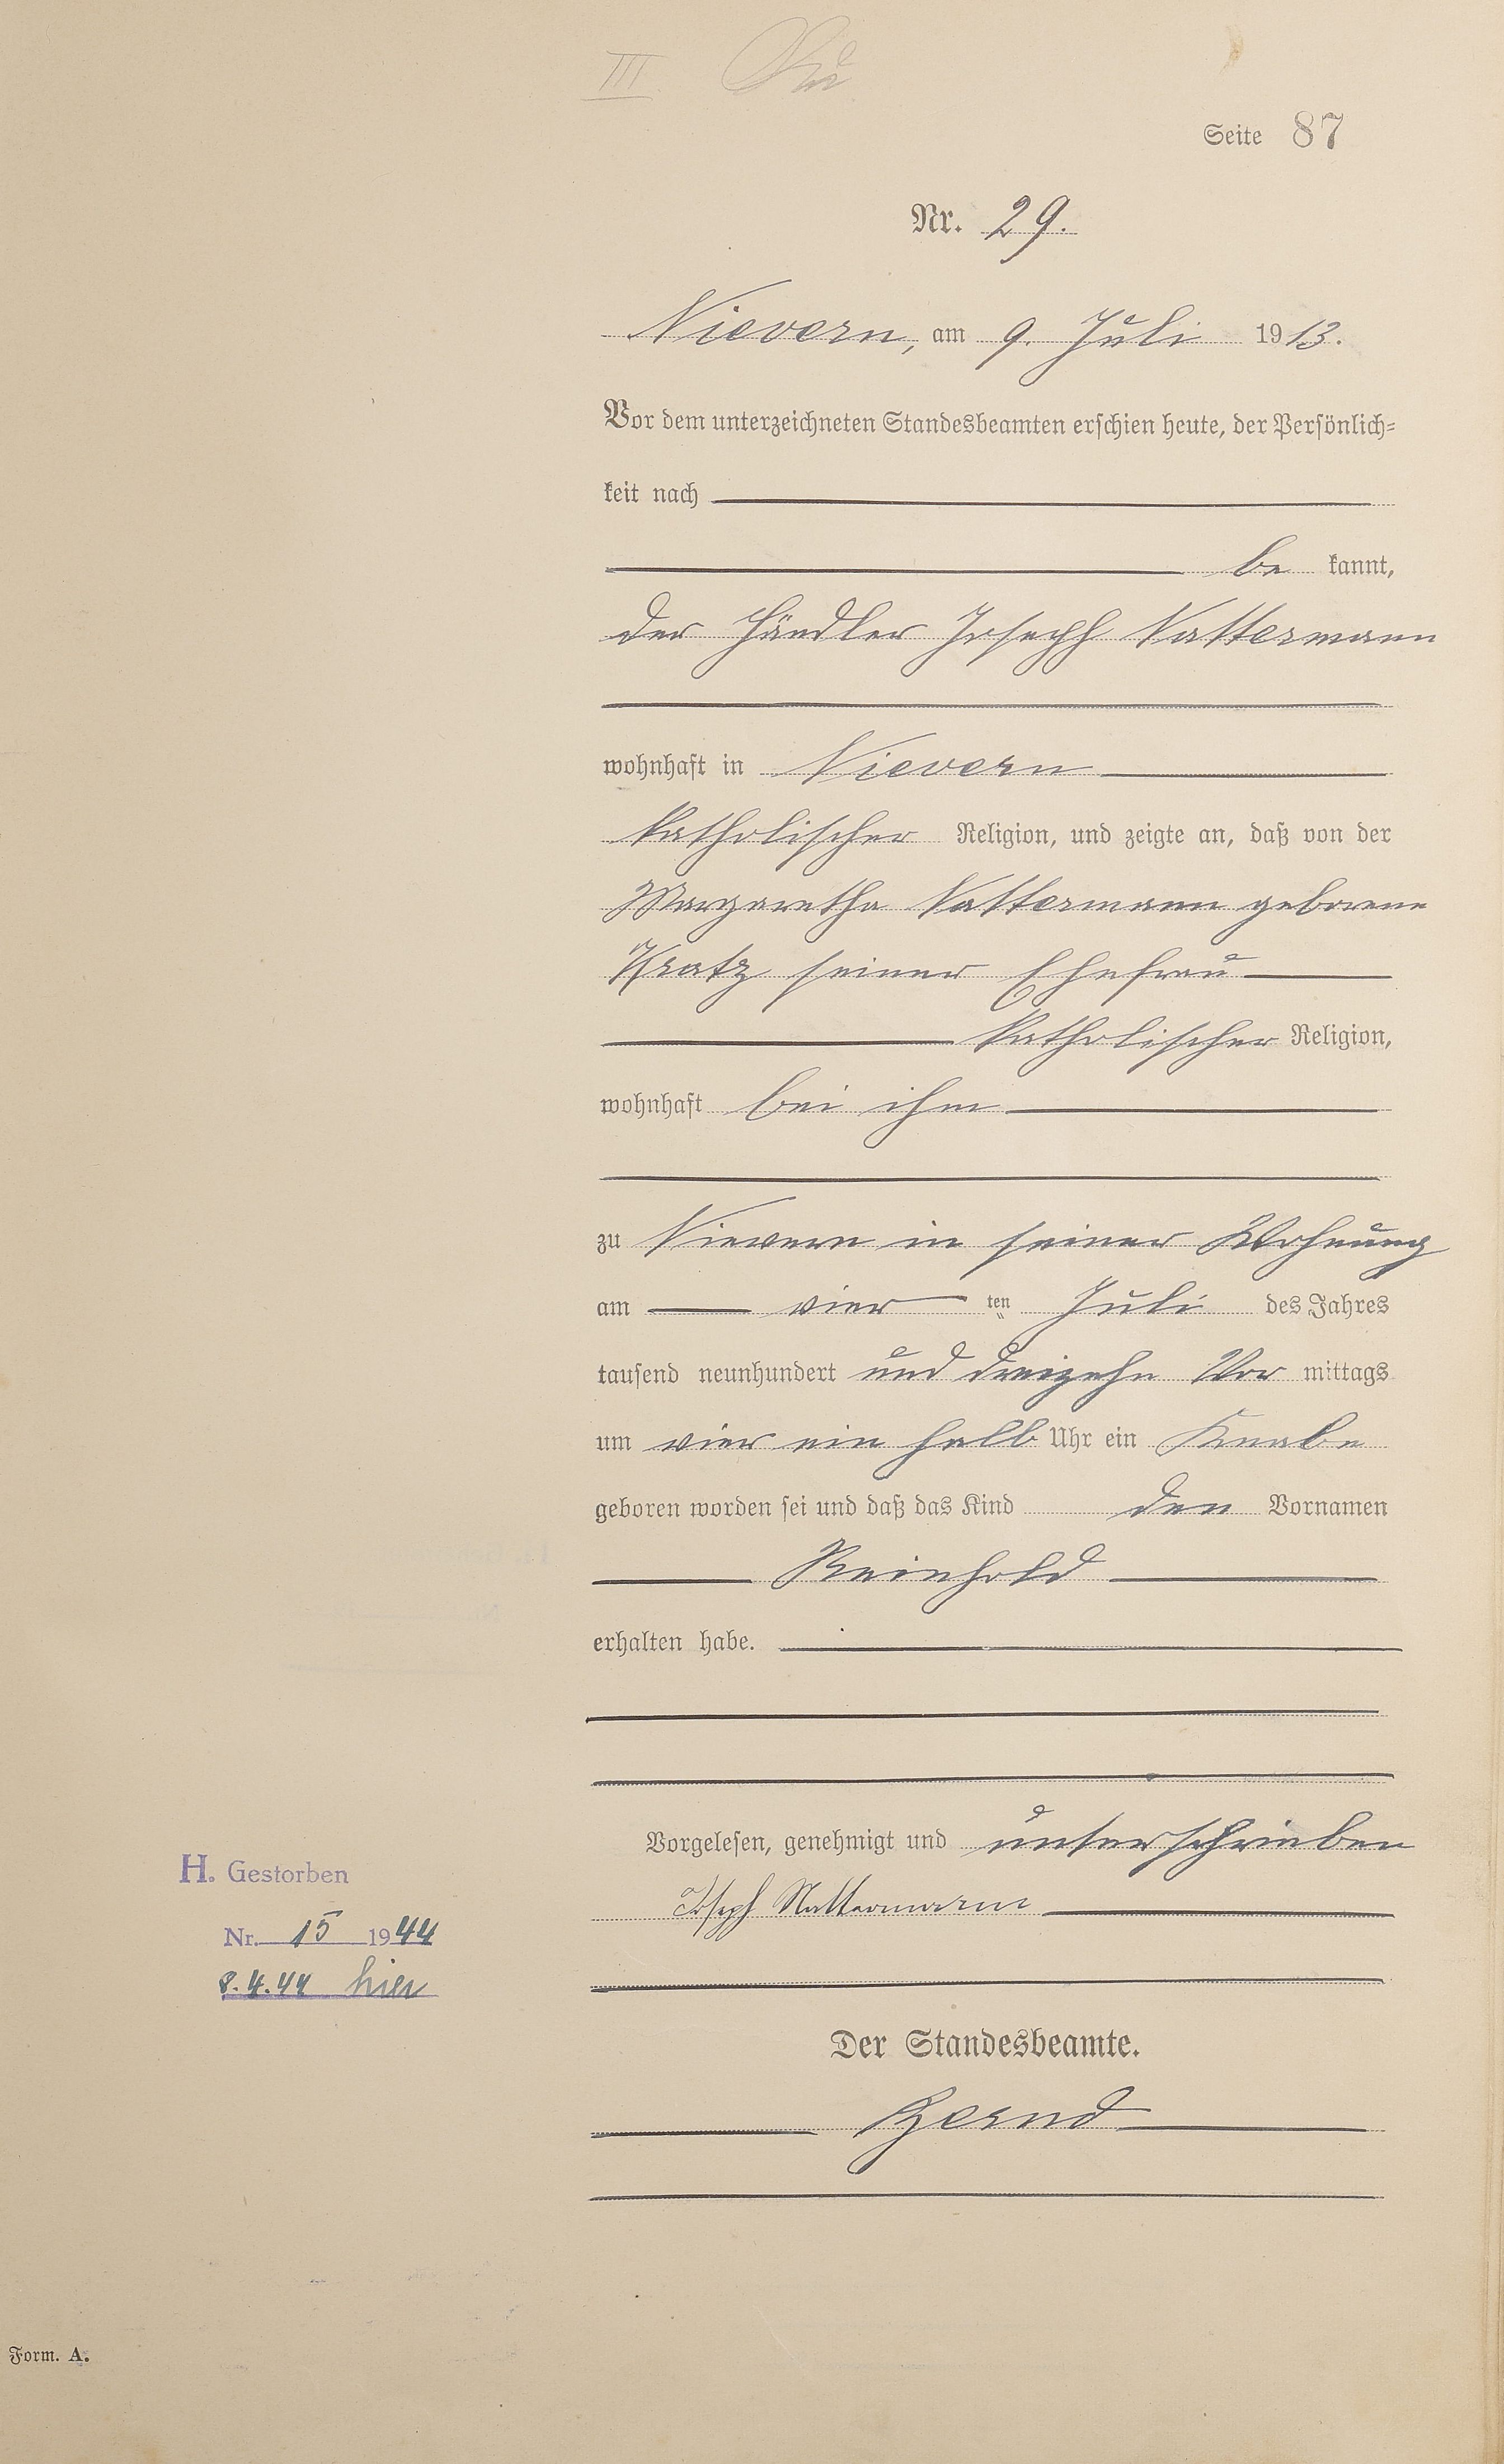 III
Seite 87
Nr. 29.
Nievern, am 9. Juli 1913.
Vor dem unterzeichneten Standesbeamten erschien heute, der Persönlich-
keit nach
be kannt,
der Händler Joseph Nattermann
wohnhaft in Nievern
katholischer Religion, und zeigte an, daß von der
Margaretha Nattermann geborene
Kratz seiner Ehefrau
katholischer Religion,
wohnhaft bei ihm
zu Nievern in seiner Wohnung
am vier ten Juli des Jahres
tausend neunhundert und dreizehn Vor mittags
um vier ein halb Uhr ein Knabe
geboren worden sei und daß das Kind den Vornamen
Reinhold
erhalten habe.
Vorgelesen, genehmigt und unterschrieben
Joseph Nattermann
H. Gestorben
Nr. 15 1944
8.4.44 hier
Der Standesbeamte.
Form. A.